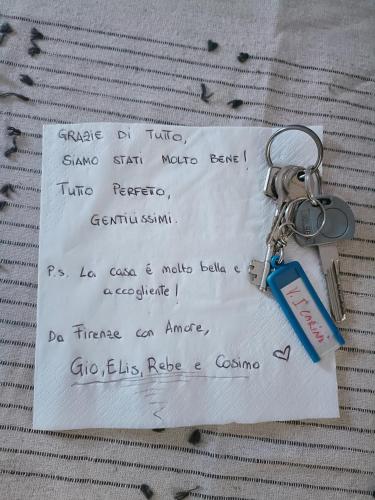 GRAZIE DI TUTTO,
SIAMO STATI MOLTO BENE!
TUTTO PERFETO,
GENTILISSIMI.
P.s. La casa é molto bella e
accogliente!
Da Firenze con Amore,
Gio, Elis, Rebe e Cosimo ♡
V. 1° CARINI